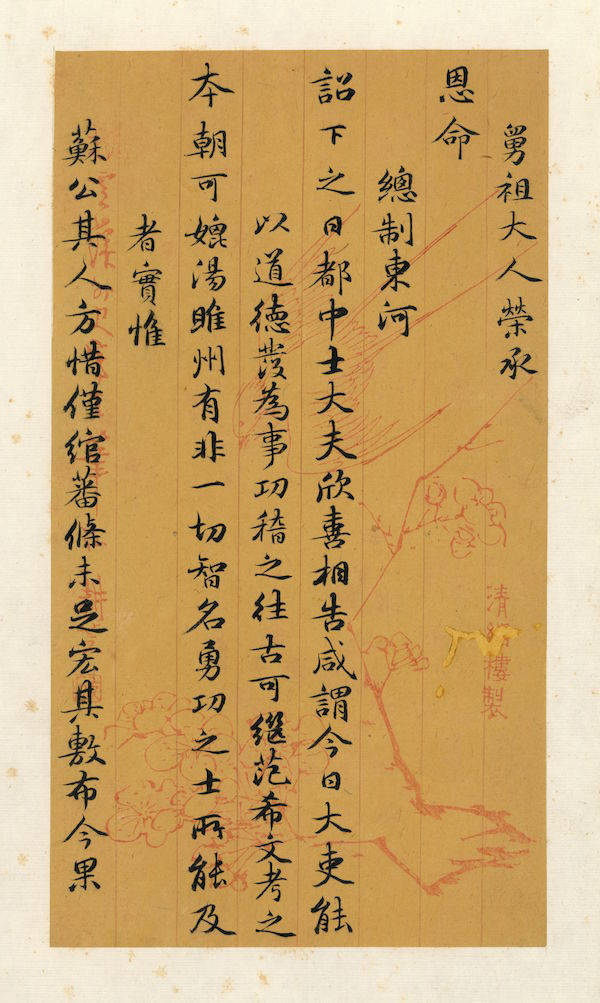 舅祖大人榮承
恩命
總制東河
詔下之日都中士大夫欣喜相告咸謂今日大吏能
以道德發為事功稽之往古可继范希文考之
本朝可媲湯睢州有非一切智名勇功之士所能及
者實惟
蘇公其人方惜僅綰藩條未足宏其敷布今果
清
樓製